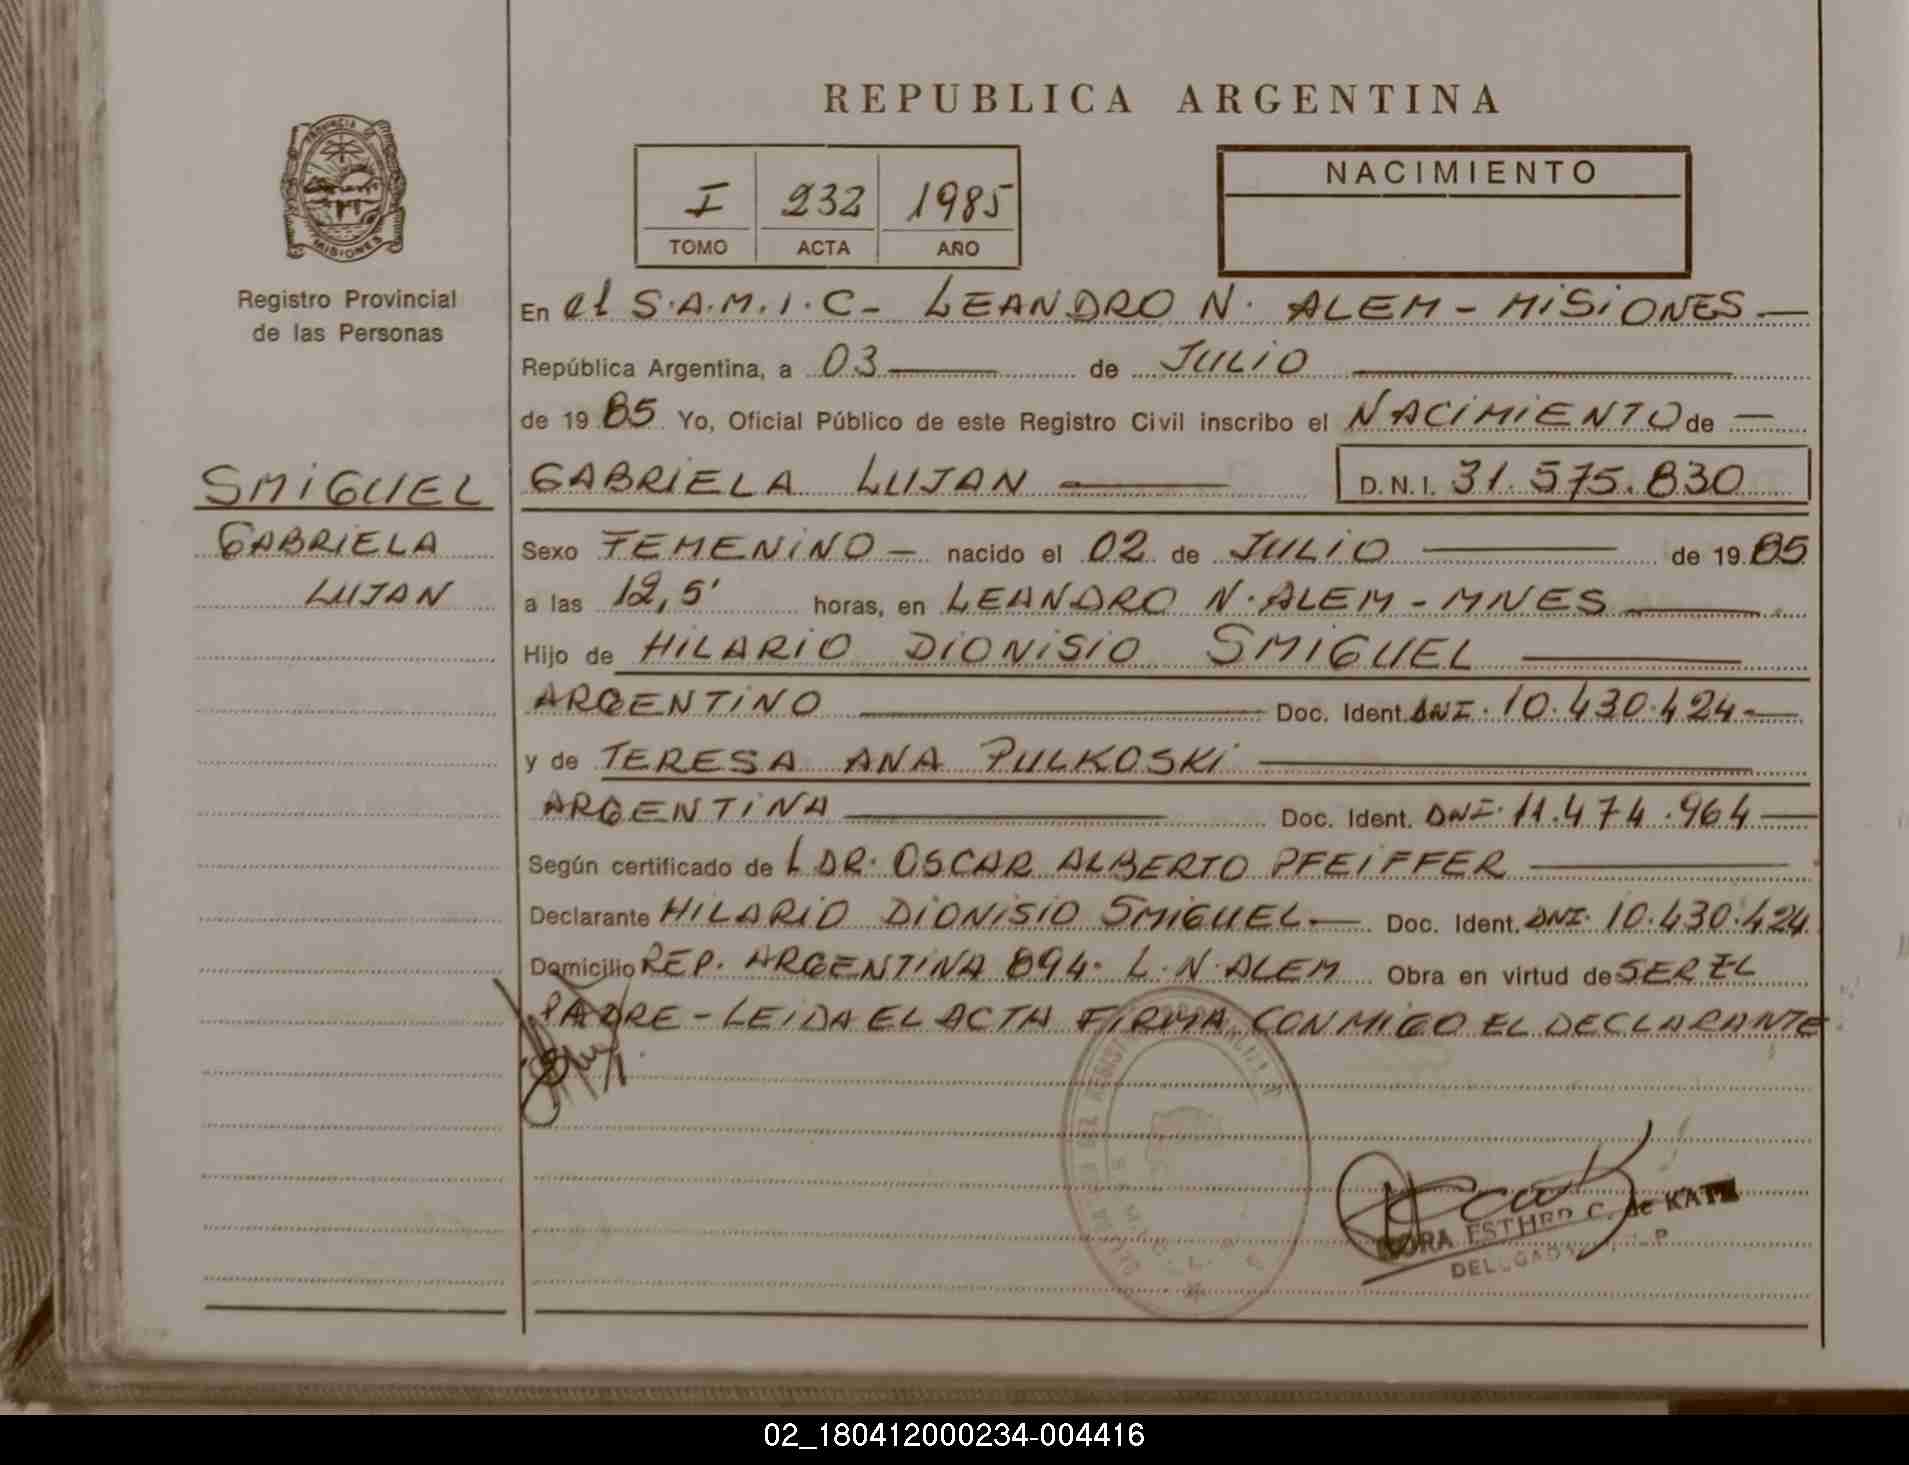 REPUBLICA ARGENTINA
PROVINCIA DE
MISIONES
Registro Provincial
de las Personas
I 232 1985
TOMO ACTA AÑO
NACIMIENTO
En el S.A.M.I.C- LEANDRO N. ALEM - MISIONES —
República Argentina, a 03 — de JULIO —
de 19 85 Yo, Oficial Público de este Registro Civil inscribo el NACIMIENTO de —
SMIGUEL
GABRIELA
LUJAN
GABRIELA LUJAN — D.N.I. 31.575.830
Sexo FEMENINO — nacido el 02 de JULIO — de 19 85
a las 12,5' horas, en LEANDRO N. ALEM - MNES —
Hijo de HILARIO DIONISIO SMIGUEL —
ARGENTINO — Doc. Ident. DNI. 10.430.424 —
y de TERESA ANA PULKOSKI —
ARGENTINA — Doc. Ident. DNI. 11.474.964 —
Según certificado de L DR. OSCAR ALBERTO PFEIFFER —
Declarante HILARIO DIONISIO SMIGUEL — Doc. Ident. DNI. 10.430.424
Domicilio REP. ARGENTINA 894. L.N. ALEM Obra en virtud de SER EL
PADRE - LEIDA EL ACTA FIRMA CONMIGO EL DECLARANTE
NORA ESTHER C. de KATZ
02_180412000234-004416